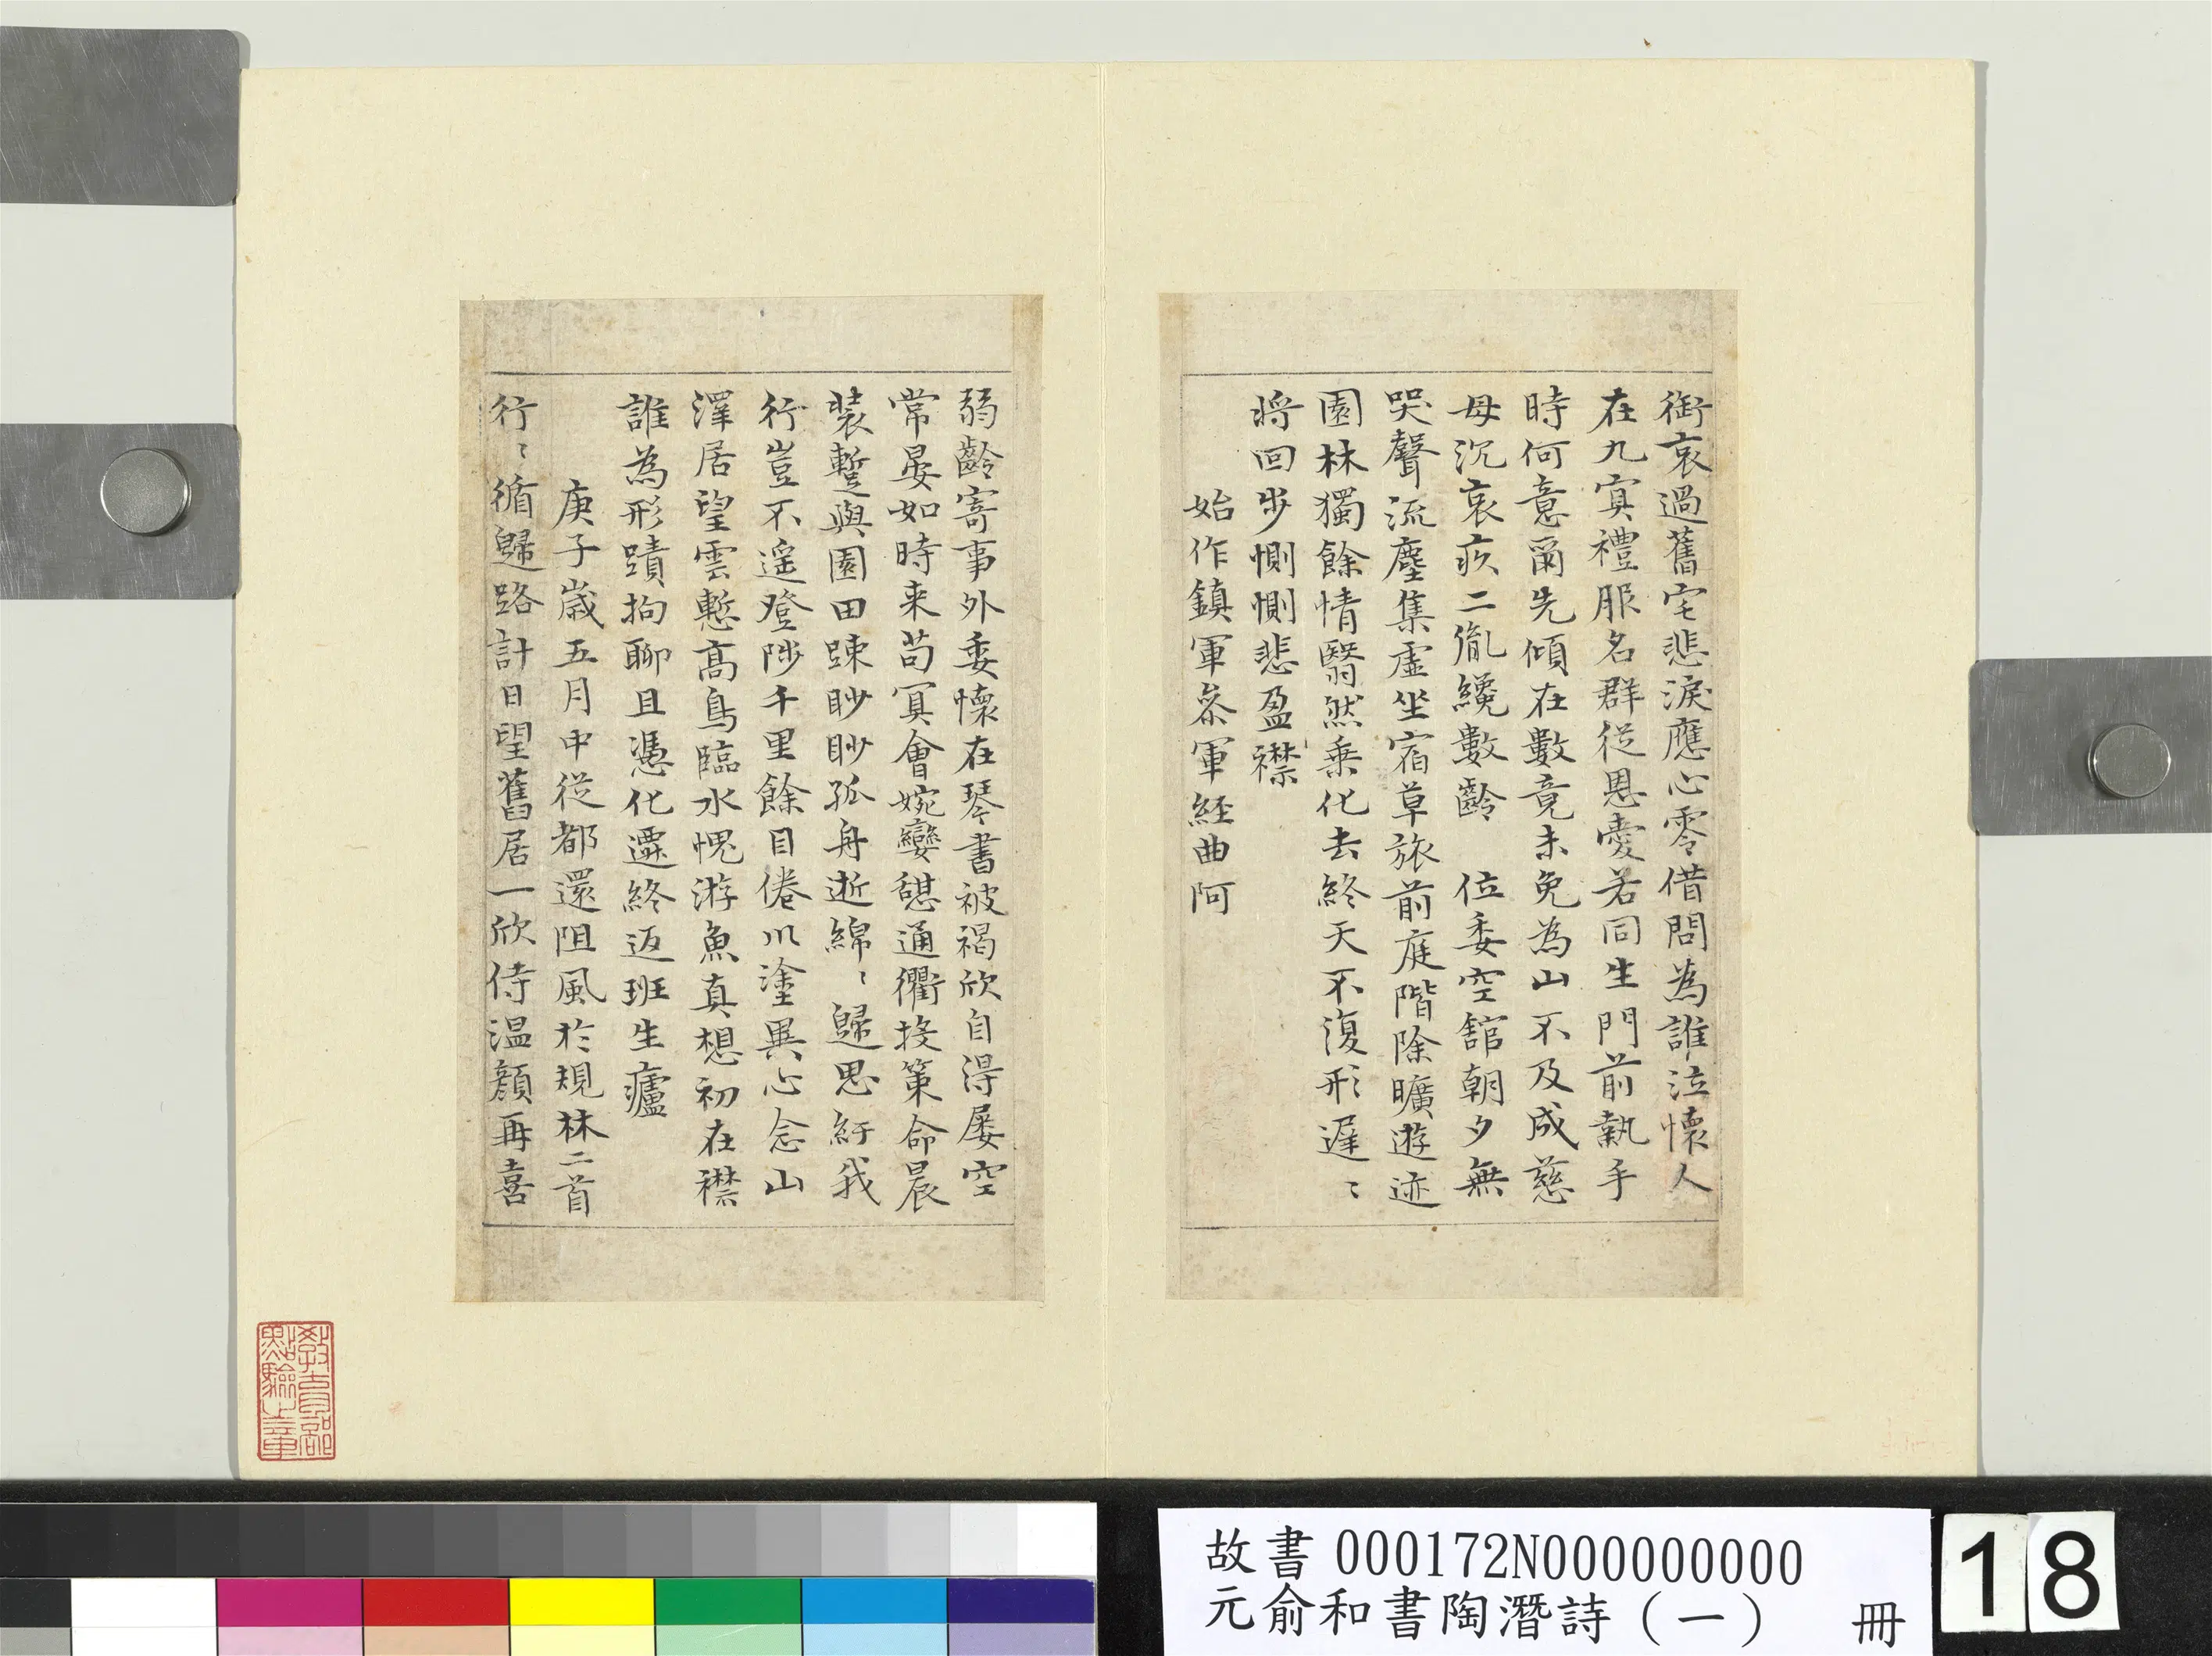 銜哀過舊宅悲淚應心零借問為誰泣懷人
在九冥禮服名群從恩愛若同生門前執手
時何意爾先傾在數竟未免為山不及成慈
母沉哀疚二胤纔數齡　位委空舘朝夕無
哭聲流塵集虛坐宿草旅前庭階除曠遊迹
園林獨餘情翳然乗化去終天不復形遲〻
將回步惻惻悲盈襟
始作鎮軍叅軍経曲阿
弱齡寄事外委懷在琴書被褐欣自得屡空
常晏如時来苟冥會婉孌憇通衢投策命晨
裝蹔與園田踈眇眇孤舟逝綿〻歸思紆我
行豈不遥登陟千里餘目倦川塗異心念山
澤居望雲慙髙鳥臨水愧游魚真想初在襟
誰為形蹟拘聊且憑化遷終返班生廬
庚子歲五月中從都還阻風於規林二首
行〻循歸路計日望舊居一欣侍温顔再喜
教育部
點驗之章
故書 000172N000000000
元俞和書陶潛詩（一）　冊
18